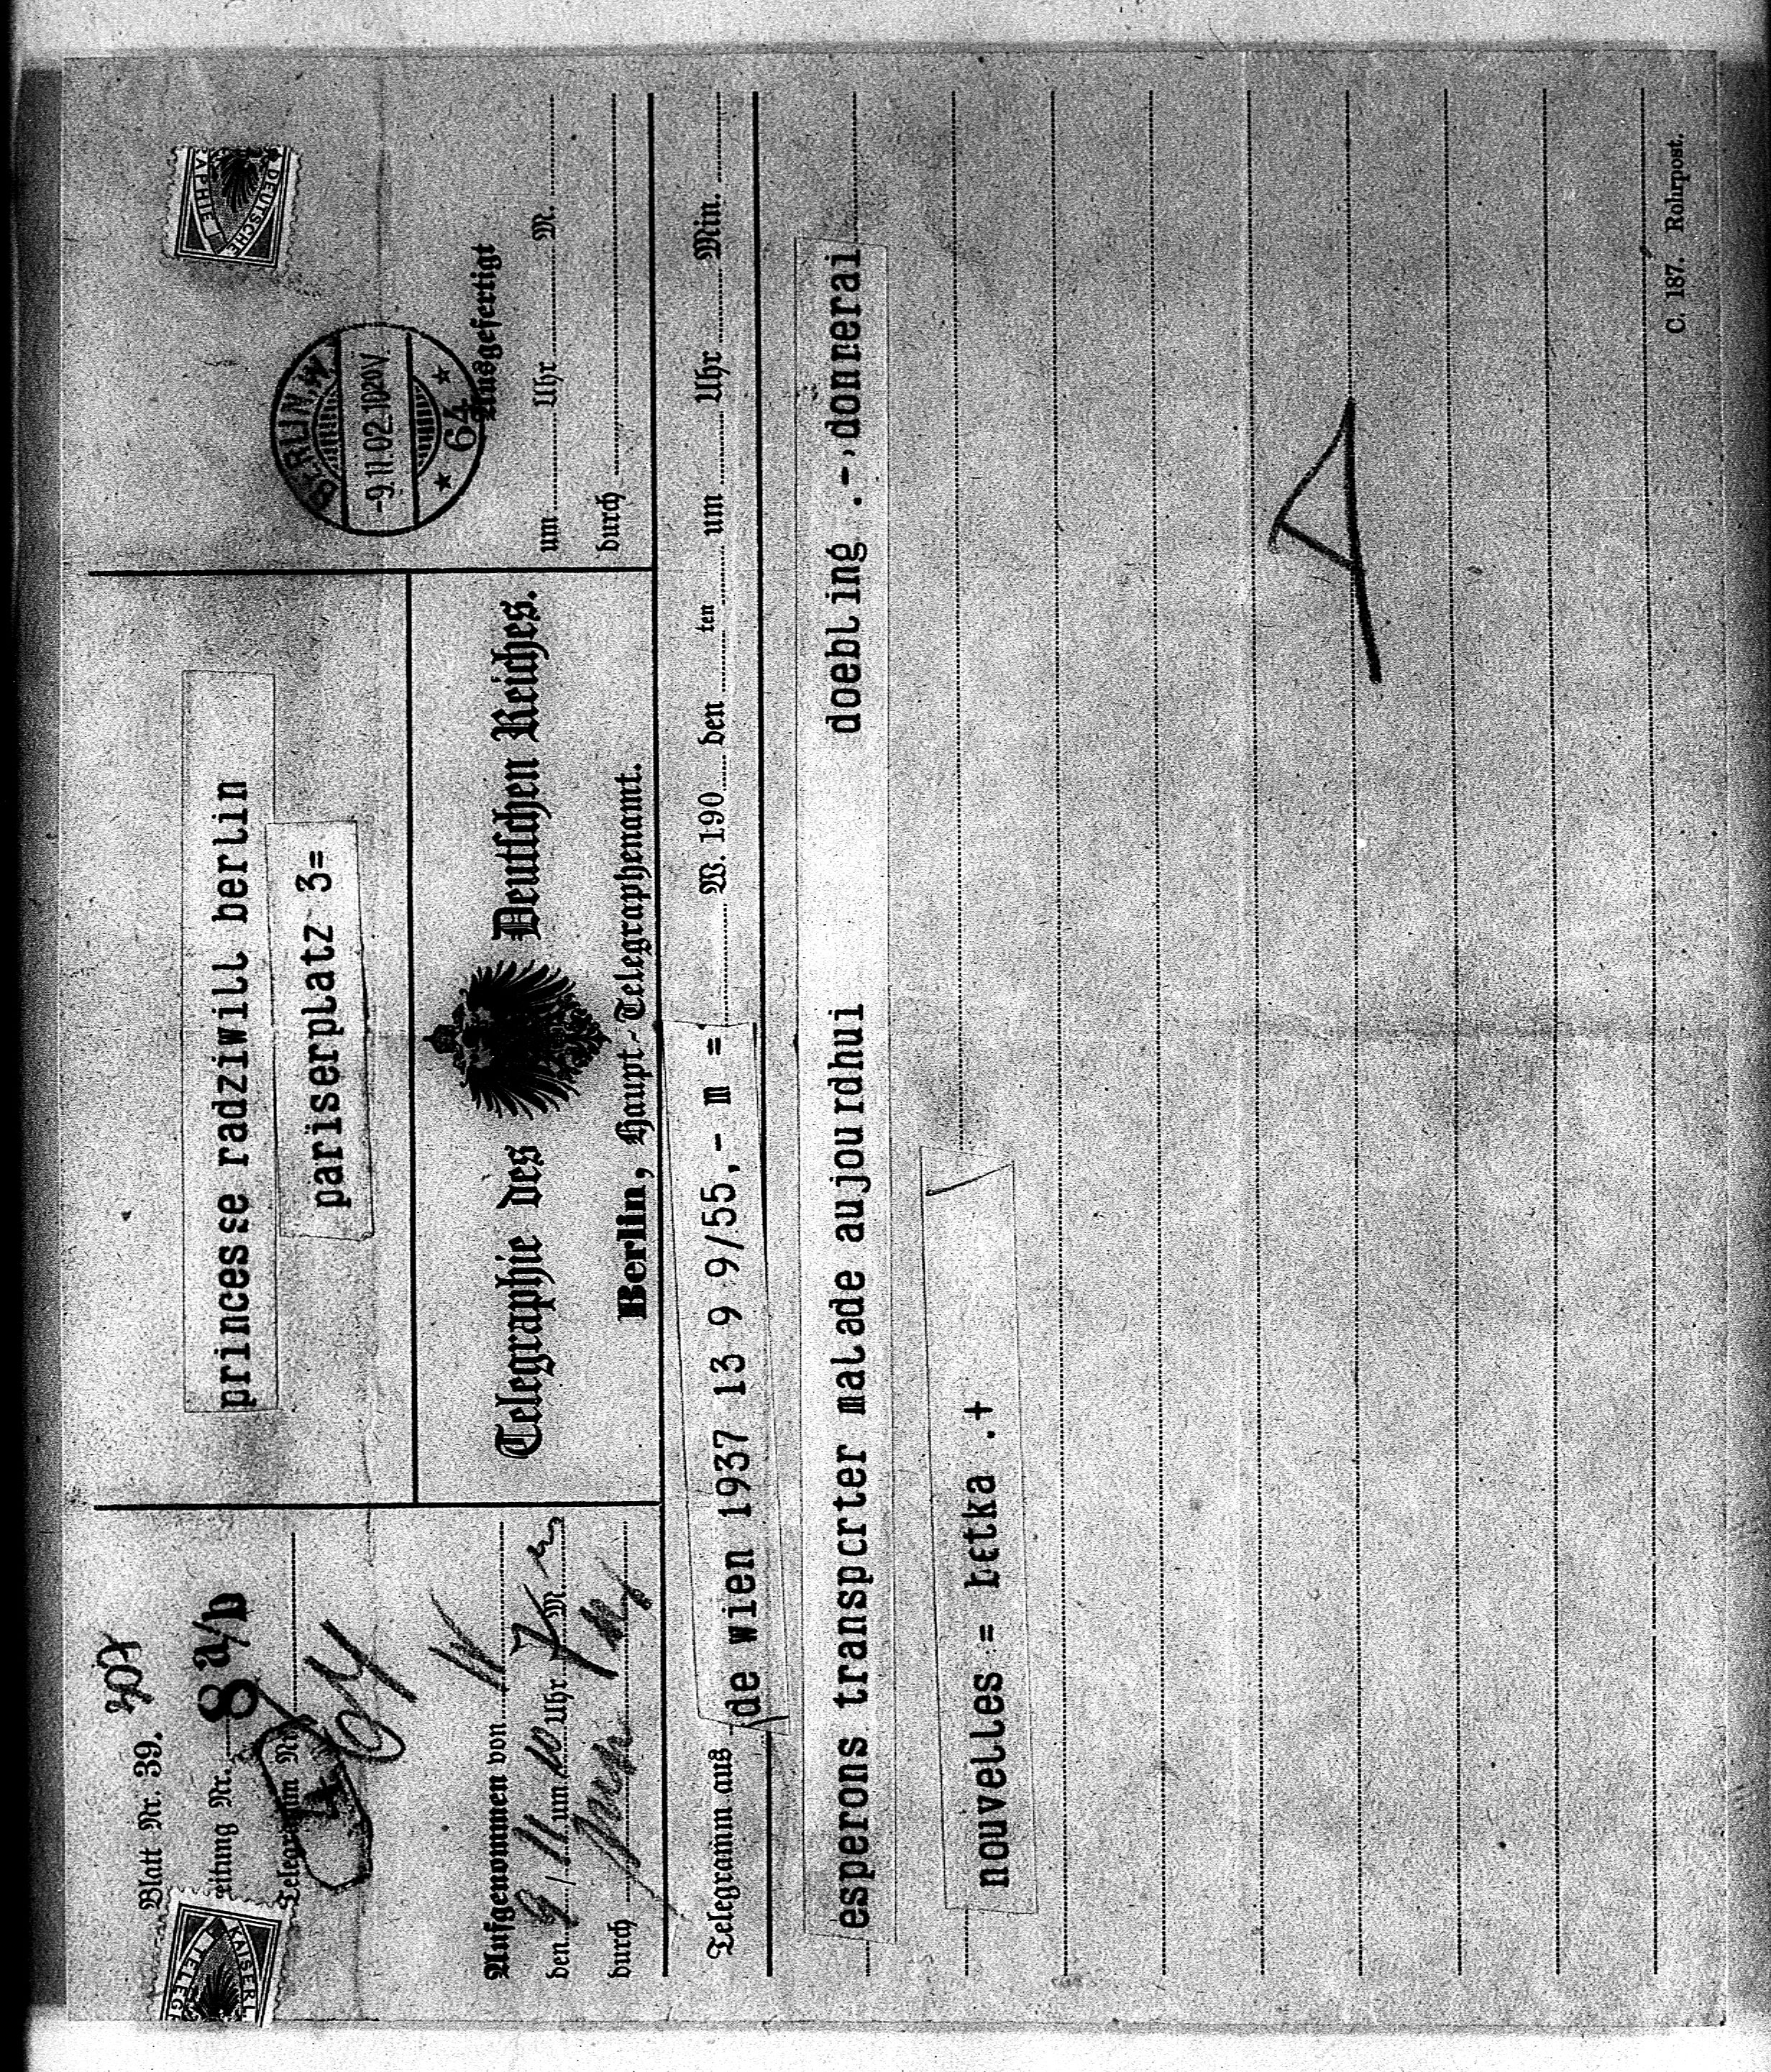 Blatt Nr. 39.
Leitung Nr. 8 a/b
Telegramm Nr.
princesse radziwill berlin
pariserplatz 3=
DEUTSCHE
BERLIN, W
-9.11.02.1020V.
* 64 *
Aufgenommen von
den 9/11 um 10 Uhr M.
durch
Telegraphie des Deutschen Reiches.
Berlin, Haupt-Telegraphenamt.
Ausgefertigt
um Uhr M.
durch
Telegramm aus de wien 1937 13 9 9/55,- m = W. 190 den ten um Uhr Min.
esperons transporter malade aujourdhui doebling .-,donnerai
nouvelles = betka .+
C. 187. Rohrpost.